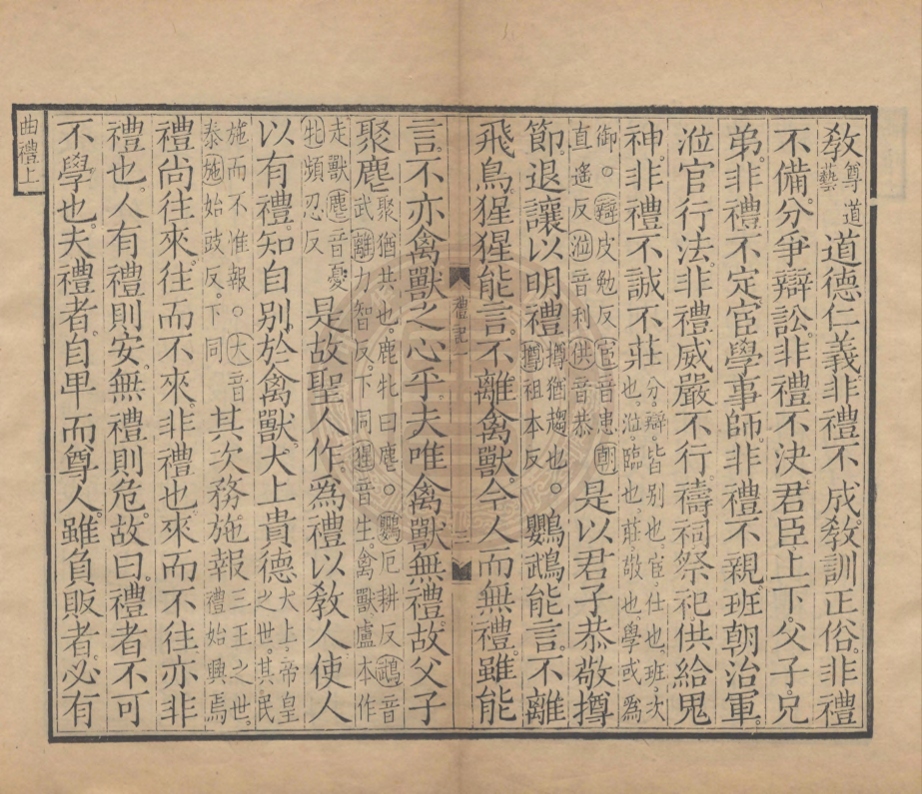 敎尊道藝道德仁義非禮不成敎訓正俗非禮
不備分爭辯訟非禮不決君臣上下父子兄
弟非禮不定宦學事師非禮不親班朝治軍
涖官行法非禮威嚴不行禱祠祭祀供給鬼
神非禮不誠不莊分辯皆别也宦仕也班次也涖臨也莊敬也學或爲
御○辯皮勉反宦音患朝直遙反涖音利供音恭是以君子恭敬撙
節退讓以明禮撙猶趨也○撙祖本反鸚鵡能言不離
飛鳥猩猩能言不離禽獸今人而無禮雖能
禮記一
三
言不亦禽獸之心乎夫唯禽獸無禮故父子
聚麀聚猶共也鹿牝曰麀○鸚厄耕反鵡音武離力智反下同猩音生禽獸盧本作
走獸麀音憂牝頻忍反是故聖人作爲禮以敎人使人
以有禮知自别於禽獸大上貴德大上帝皇之世其民
施而不惟報○大音泰施始豉反下同其次務施報三王之世禮始興焉
禮尚往來往而不來非禮也來而不往亦非
禮也人有禮則安無禮則危故曰禮者不可
不學也夫禮者自卑而尊人雖負販者必有
曲禮上